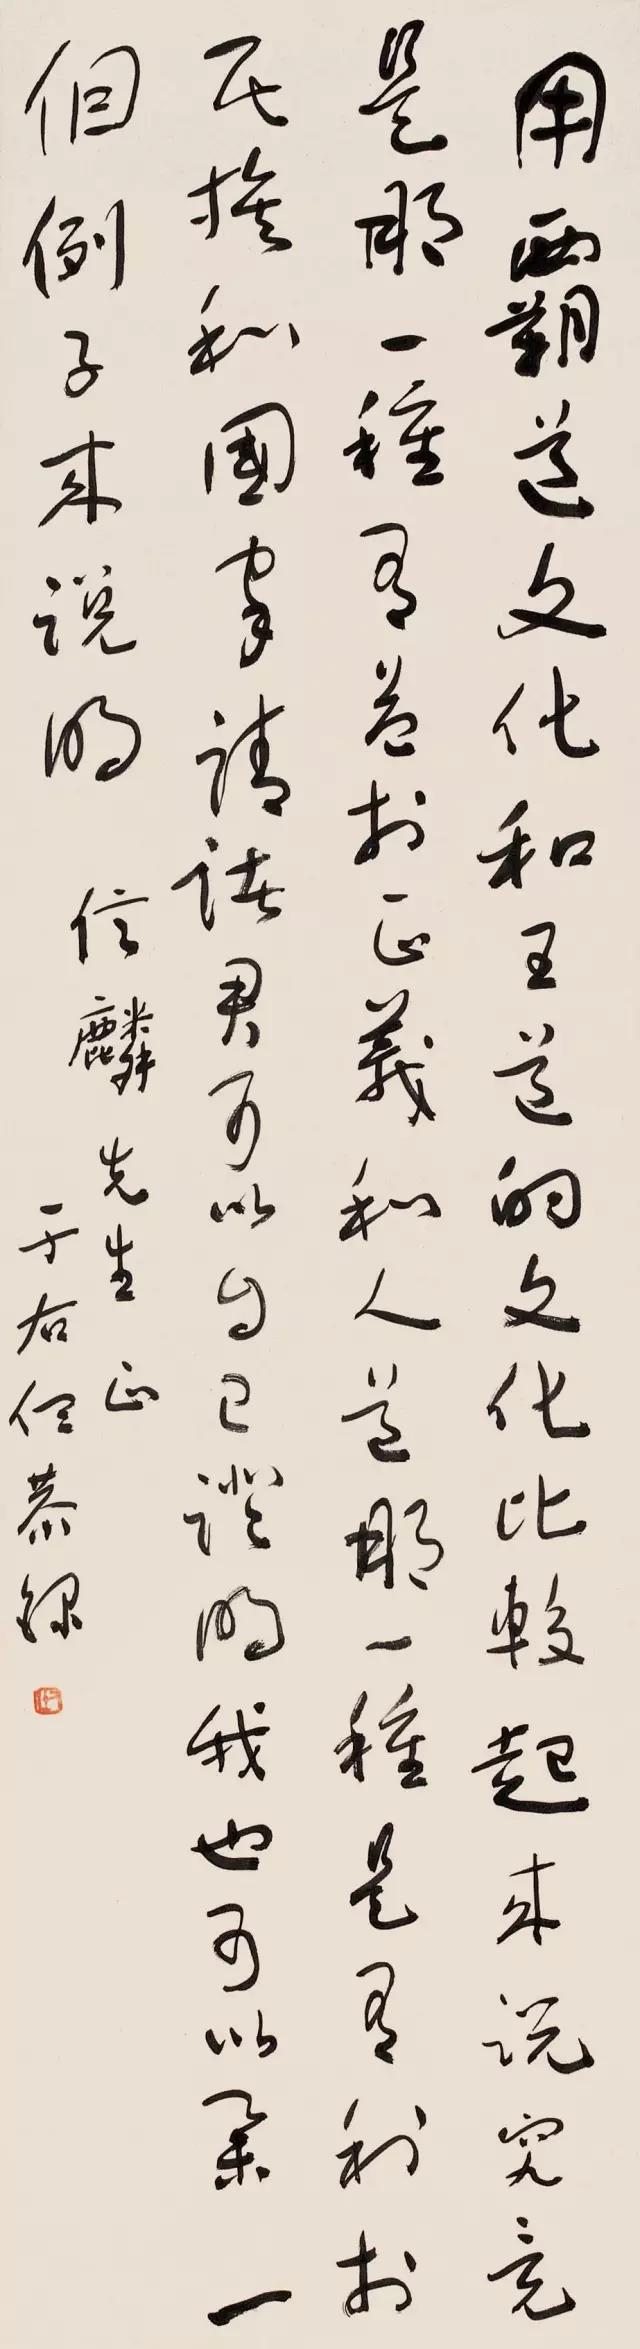 用霸道文化和王道的文化比較起來說究竟
是那一種有益於正義和人道那一種是有利於
民族和國家請諸君可以自己證明我也可以舉一
個例子來說明
信麟先生正
于右任恭錄